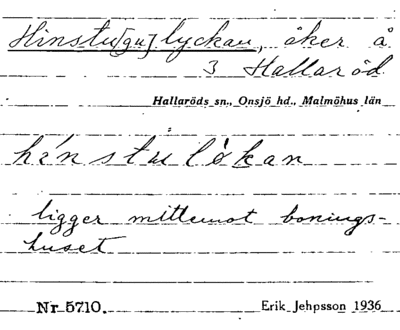 Hinstu[gu]lyckan, åker å
3 Hallaröd
Hallaröds sn., Onsjö hd., Malmöhus län
hénstulökan
ligger mittemot bonings-
huset
Nr 5710.
Erik Jehpsson 1936